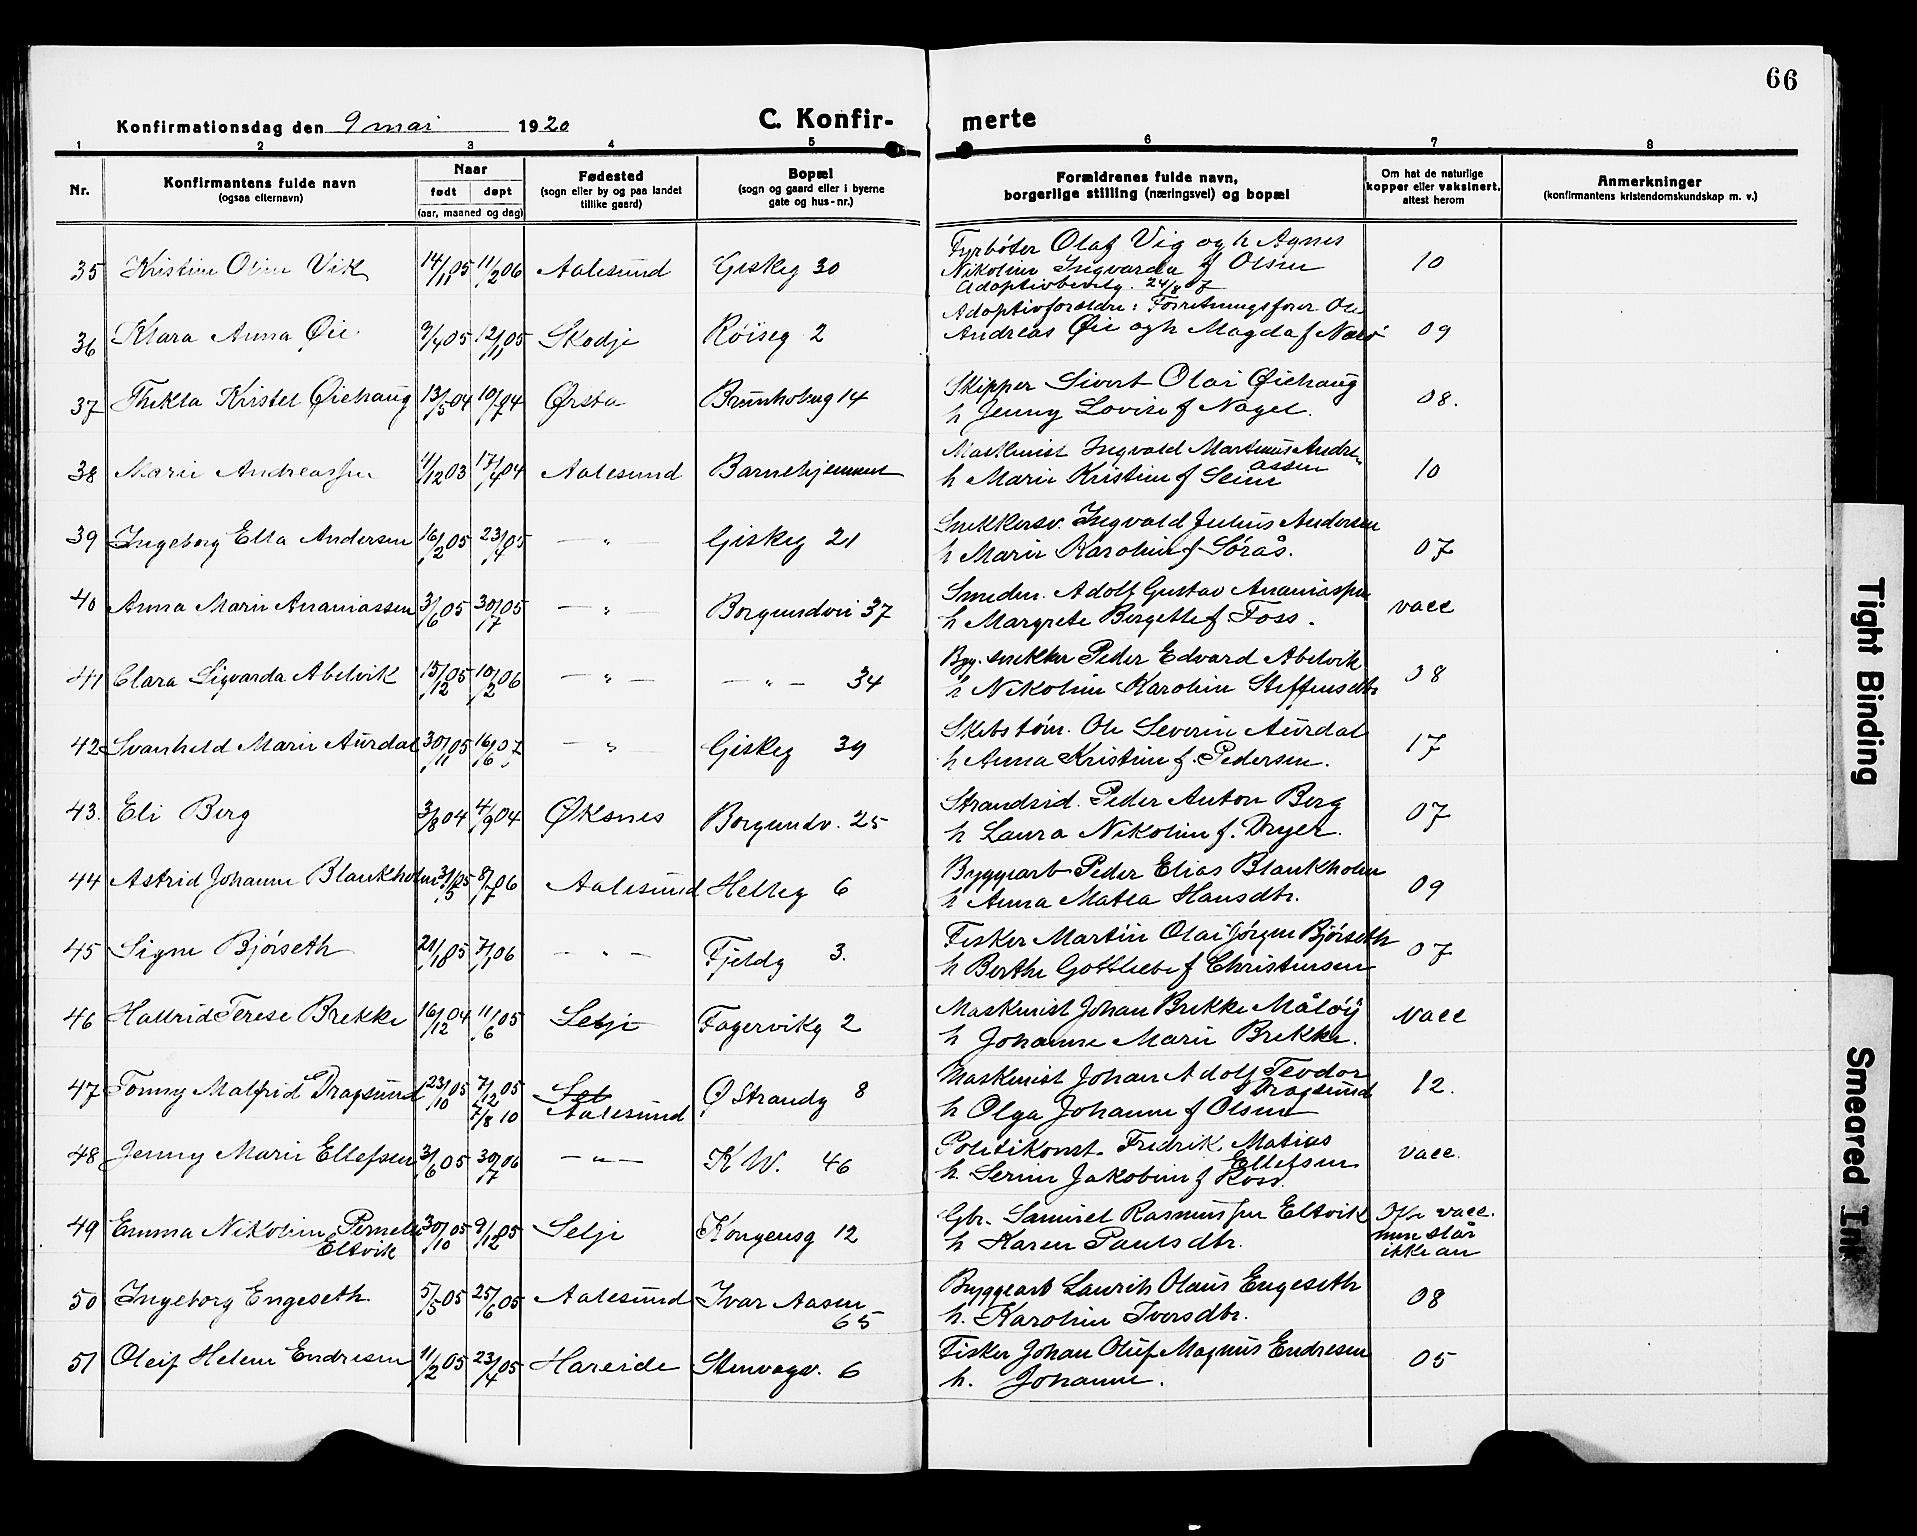 66
Konfirmationsdag den 9 mai 1920 C. Konfir- merte
1 2 3 4 5 6 7 8
Nr. Konfirmantens fulde navn (ogsaa efternavn) Naar født døpt (aar, maaned og dag) Fødested (sogn eller by og paa landet tillike gaard) Bopæl (sogn og gaard eller i byerne gate og hus-nr.) Forældrenes fulde navn, borgerlige stilling (næringsvei) og bopæl Om hat de naturlige kopper eller vaksinert, attest herom Anmerkninger (konfirmantens kristendomskundskap m. v.)
35 Kristine Oline Vik 14/11 05 11/2 06 Aalesund Giskeg 30 Fyrbøter Olaf Vig og h Agnes
Nikoline Ingvarda f Olsen 10
Adoptivbevilg. 24/8 07
36 Klara Anna Øie 9/4 05 12/11 05 Skodje Røiseg 2 Adoptivforældre: Forretningsfører Ole
Andreas Øie og h Magda f Nærø 09
37 Thekla Kristel Øiehaug 13/5 04 10/7 04 Ørsta Brunholmg 14 Skipper Sivert Olai Øiehaug
h Jenny Lovise f Nagel. 08.
38 Marie Andreassen 4/12 03 17/4 04 Aalesund Barnehjemmet Maskinist Ingvald Martinus Andre-
assen
h Marie Kristine f 10
39 Ingeborg Ella Andersen 16/2 05 23/4 05 — " — Giskeg 21 Snekkersv. Ingvald Julius Andersen
h Marie Karoline f Sørås. 07
40 Anna Marie Ananiassen 3/6 05 30/7 05 — " — Borgundvei 37 Smedm. Adolf Gustav Ananiassen
h Margrete Bergette f Foss. vacc
41 Clara Sigvarda Abelvik 15/12 05 10/2 06 — " — — " — 34 Byg. snekker Peder Edvard Abelvik
h Nikoline Karoline Steffensdtr 08
42 Svanhild Marie Aurdal 30/11 05 16/6 07 — " — Giskeg 39 Skibstøm. Ole Severin Aurdal
h Anna Kristine f. Pedersen. 17
43. Eli Berg 3/8 04 4/9 04 Øksnes Borgundv. 25 Strandsid. Peder Anton Berg
h Laura Nikoline f. Dryer. 07
44 Astrid Johanne Blankholm 31/5 05 8/7 06 Aalesund Helleg 6 Byggearb Peder Elias Blankholm
h Anna Matea Hansdtr. 09
45 Signe Bjørseth 21/18 05 7/1 06 — " — Fjeldg 3. Fisker Martin Olai Jørgen Bjørseth
h Berthe Gottliebe f Christensen 07
46 Hallrid Terese Brekke 16/12 04 11/6 05 Selje Fagervikg 2 Maskinist Johan Brekke Måløy
h Johanne Marie Brekke. vacc
47 Tonny Malfrid Dragsund 23/10 05 7/12 05 Sel Ø Strandg 8 Maskinist Johan Adolf Teodor
Dragsund
7/8 10 Aalesund h Olga Johanne f Olsen 12.
48 Jenny Marie Ellefsen 3/6 05 30/7 06 — " — K W. 46 Politikonst. Fredrik Matias
Ellefsen
h. Serine Jakobine f Ross. vacc.
49 Emma Nikoline Pernele
Eltvik 30/10 05 9/12 05 Selje Kongensg 12 Gbr. Samuel Rasmussen Eltvik
h Karen Paulsdtr. vacc.
men slår
ikke an
50 Ingeborg Engeseth 5/5 05 25/6 05 Aalesund Ivar Aasen-
65 Byggearb Laurits Olaus Engeseth
h. Karoline Iversdtr. 08
51 Oleif Helene Endresen 11/2 05 23/4 05 Hareide Stenvagv. 6 Fisker Johan Oluf Magnus Endresen
h. Johanne. 05
Tight Binding
Smeared Ink